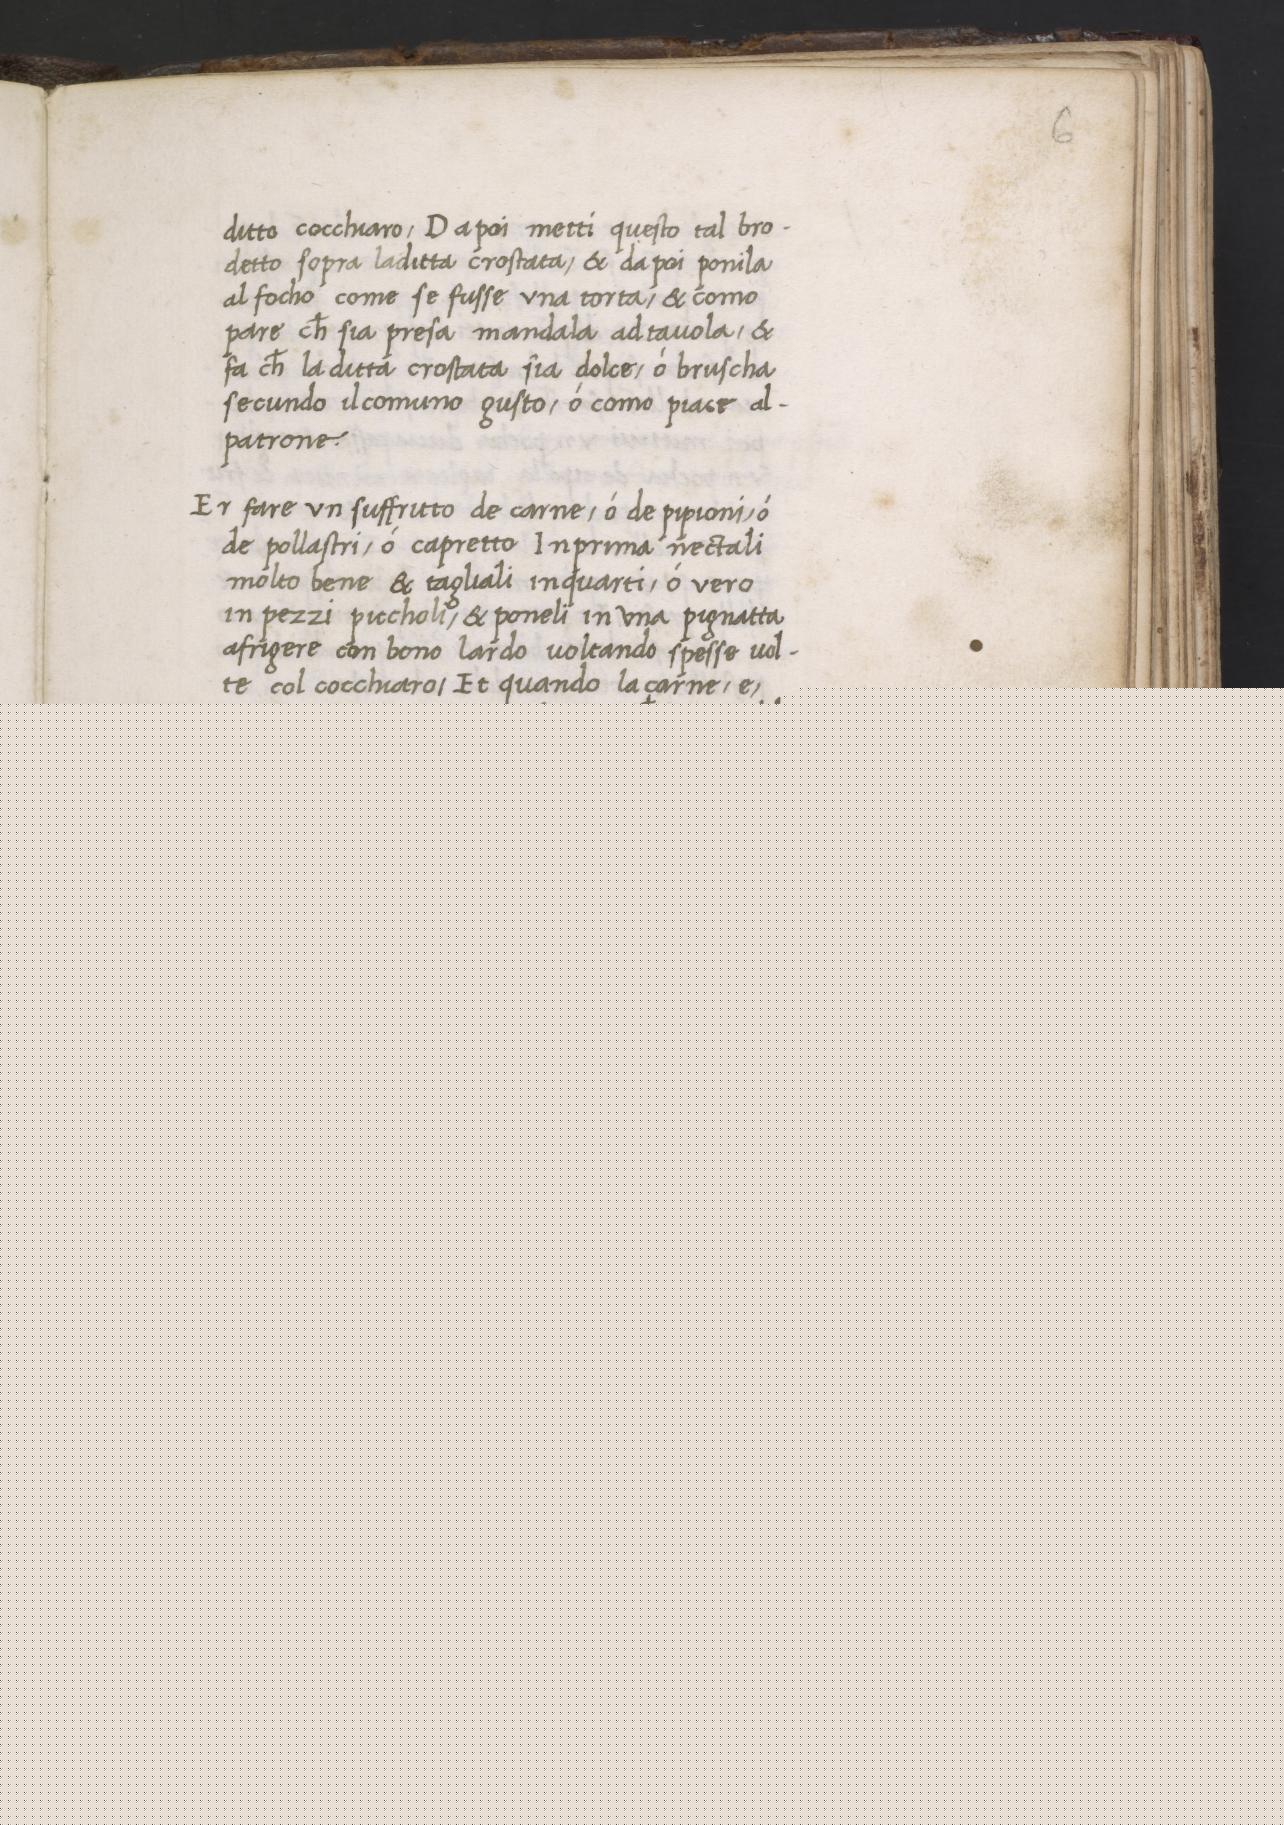 6
ditto cocchiaro, Dapoi metti questo tal bro-
detto sopra la ditta crostata, & da poi ponila
al focho come se fusse vna torta, & como
pare ch̄ sia presa mandala ad tauola, &
fa ch̄ la ditta crostata sia dolce, ó bruscha
secundo il comuno gusto, ó como piace al-
patrone.
Er fare vn suffritto de carne, ó de pipioni, ó
de pollastri, ó capretto In prima nectali
molto bene & tagliali in quarti, ó vero
in pezzi piccholi, & poneli in vna pignatta
afrigere con bono lardo uoltando spesse uol-
te col cocchiaro, Et quando la carne, e,